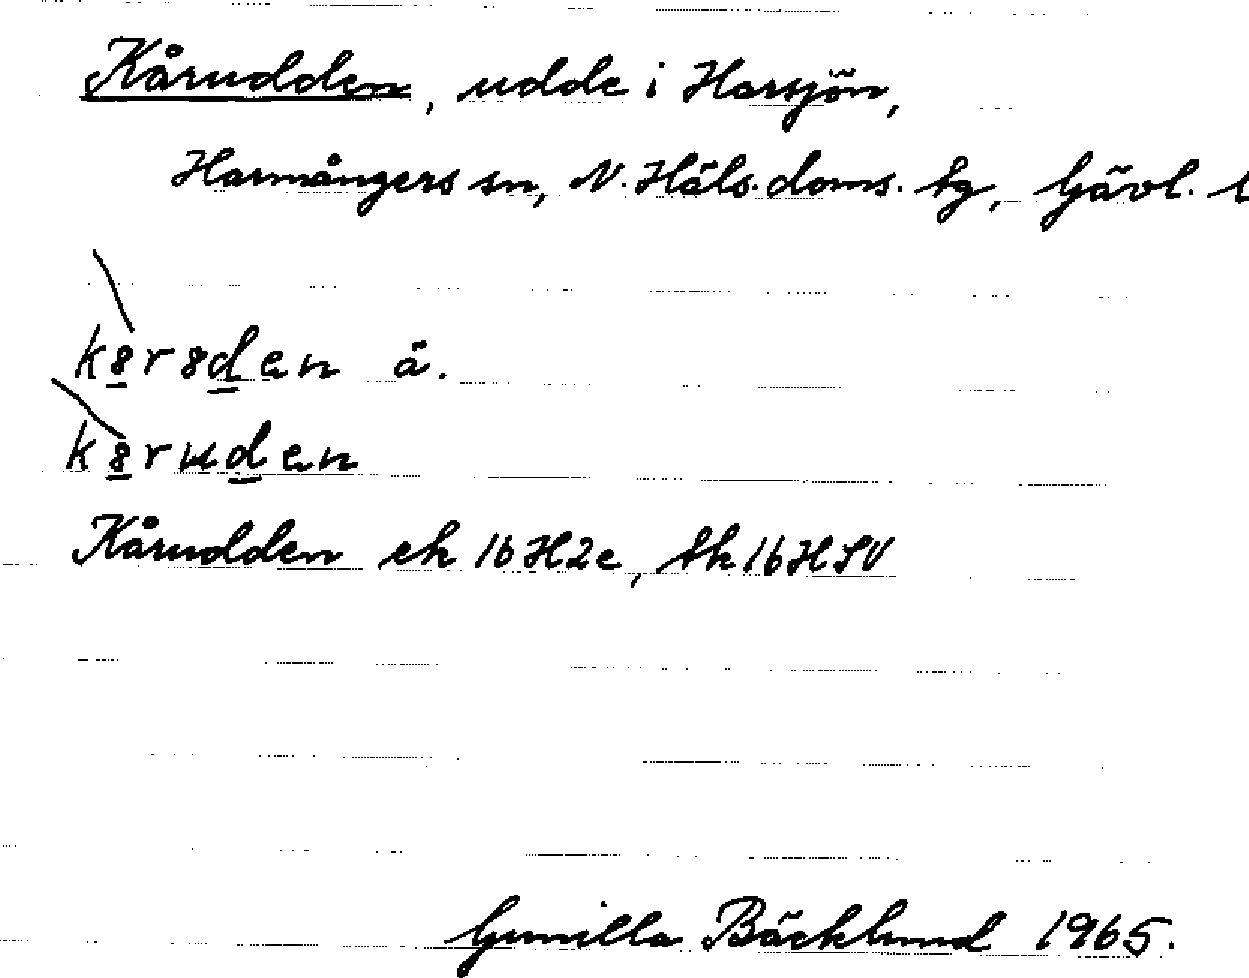 Kårudden, udde i Harsjön,
Harmångers sn, N. Häls. doms. tg, Gävl. l
k8r8den ä.
k8ruden
Kårudden ek 16H2c, tk 16HSV
Gunilla Bäcklund 1965.